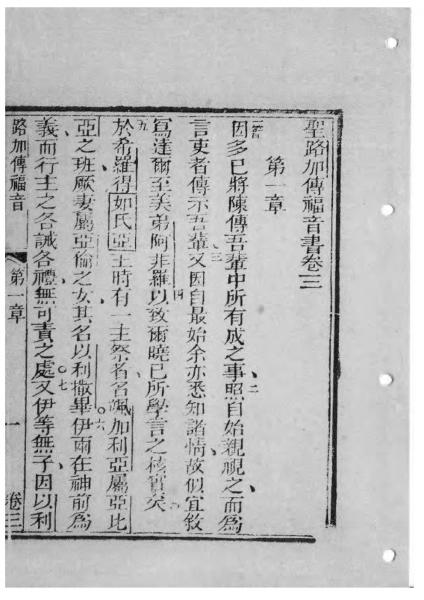 聖路加傳福音書卷三
第一章
一節因多已將陳傳吾輩中所有成之事二照自始親視之而為
言吏者傳示吾輩三又因自最始余亦悉知諸情故似宜敘
寫達爾至美弟阿非羅四以致爾曉已所學言之確實矣
五於希羅得如氏亞王時有一主祭者名颯加利亞屬亞比
亞之班厥妻屬亞倫之女其名以利撒畢六伊兩在神前為
義而行主之各誡各禮無可責之處七又伊等無子因以利
路加傳福音 第一章 一 卷三